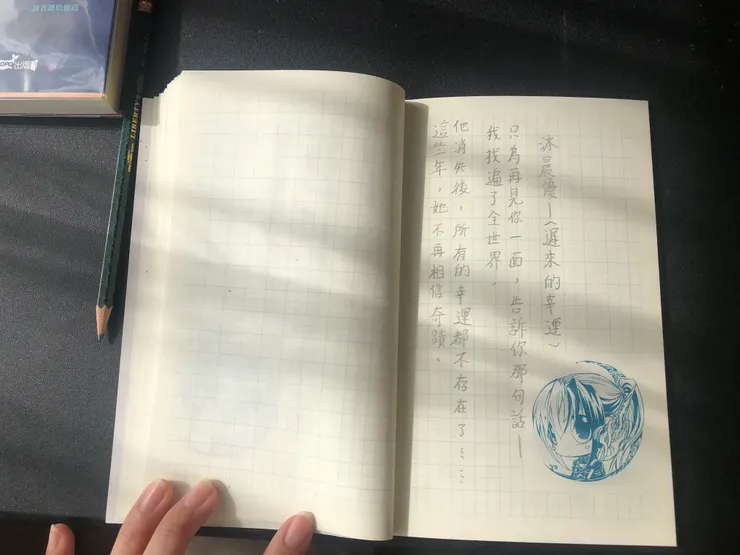 沐晨優—〈遲來的幸運〉
只為再見你一面，告訴你那句話—
我找遍了全世界。
他消失後，所有的幸運都不存在了……
這些年，她不再相信奇蹟。
LIBERTY
出版